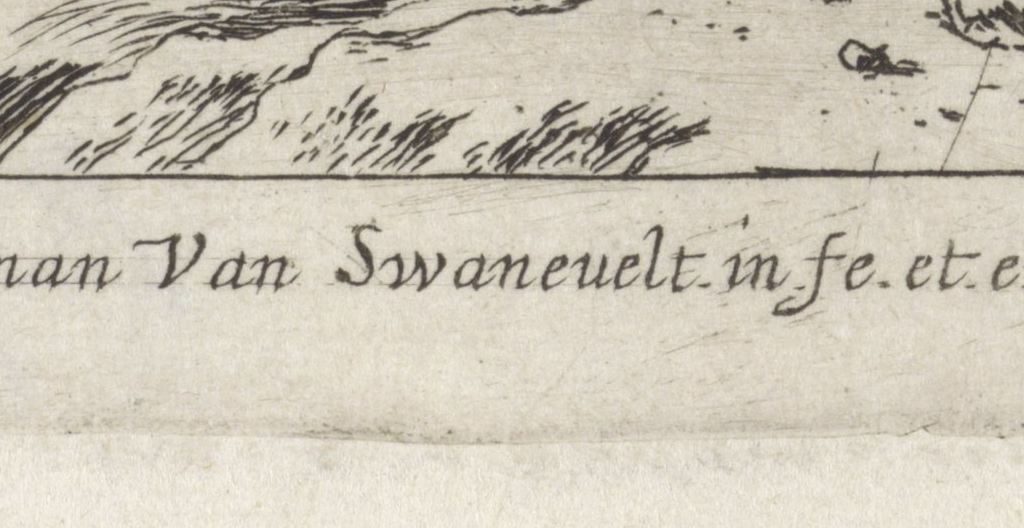 nan Van Swaneuelt. in. fe. et. e